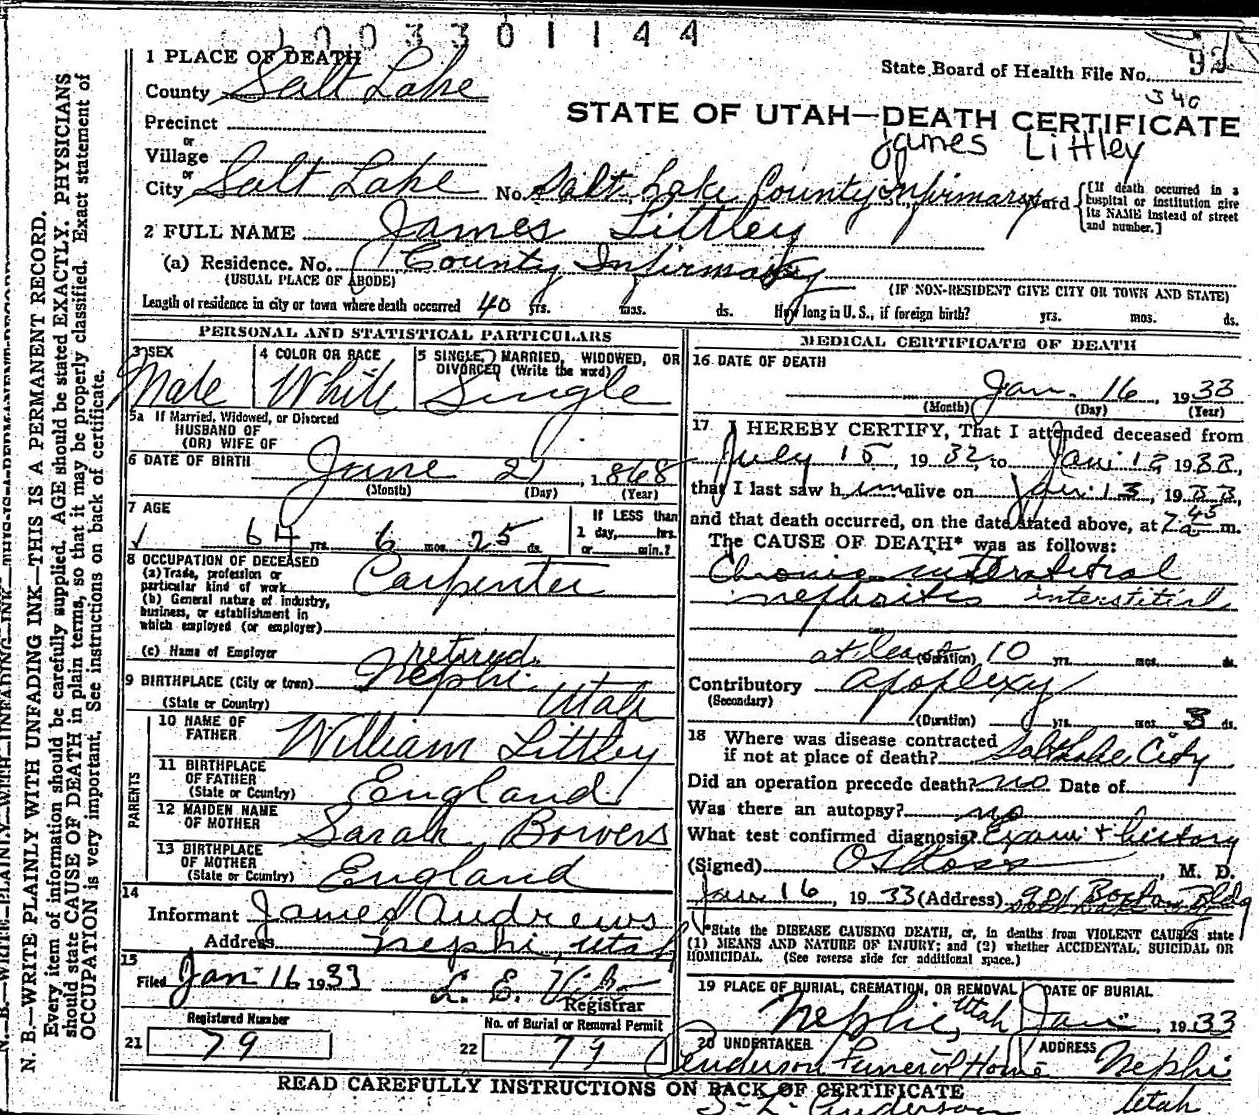 1003301144
1 PLACE OF DEATH
State Board of Health File No. 92
340
County Salt Lake
STATE OF UTAH—DEATH CERTIFICATE
Precinct
James Littley
or
Village
or
City Salt Lake No. Salt Lake County Infirmary Ward {[If death occurred in a hospital or institution give its NAME instead of street and number.]
2 FULL NAME James Littley
(a) Residence. No. County Infirmary
(USUAL PLACE OF ABODE) (IF NON-RESIDENT GIVE CITY OR TOWN AND STATE)
Length of residence in city or town where death occurred 40 yrs. mos. ds. How long in U. S., if foreign birth? yrs. mos. ds.
PERSONAL AND STATISTICAL PARTICULARS
3 SEX
Male
4 COLOR OR RACE
White
5 SINGLE, MARRIED, WIDOWED, OR
DIVORCED (Write the word)
Single
5a If Married, Widowed, or Divorced
HUSBAND OF
(OR) WIFE OF
6 DATE OF BIRTH June 21, 1868
(Month) (Day) (Year)
7 AGE
64 yrs. 6 mos. 25 ds.
If LESS than
1 day, hrs.
or min.?
8 OCCUPATION OF DECEASED
(a) Trade, profession or
particular kind of work Carpenter
(b) General nature of industry,
business, or establishment in
which employed (or employer)
(c) Name of Employer retired
9 BIRTHPLACE (City or town) Nephi
(State or Country) Utah
PARENTS
10 NAME OF
FATHER William Littley
11 BIRTHPLACE
OF FATHER
(State or Country) England
12 MAIDEN NAME
OF MOTHER Sarah Bowers
13 BIRTHPLACE
OF MOTHER
(State or Country) England
14
Informant James Andrews
Address Nephi, Utah
15
Filed Jan 16 1933 L. E.
Registrar
Registered Number
21 79
No. of Burial or Removal Permit
22 79
MEDICAL CERTIFICATE OF DEATH
16 DATE OF DEATH
Jan. 16, 1933
(Month) (Day) (Year)
17 I HEREBY CERTIFY, That I attended deceased from
July 15, 1932, to Jan. 1933,
that I last saw him alive on Jan. 13, 1933,
and that death occurred, on the date stated above, at 7 45 a m.
The CAUSE OF DEATH* was as follows:
Chronic
nephritis interstitial
at least (Duration) 10 yrs. mos. ds.
Contributory Apoplexy
(Secondary)
(Duration) yrs. mos. 3 ds.
18 Where was disease contracted
if not at place of death? Salt Lake City
Did an operation precede death? no Date of
Was there an autopsy? no
What test confirmed diagnosis? Exam + history
(Signed) , M. D.
Jan 16, 1933 (Address) 901 Boston Bldg
*State the DISEASE CAUSING DEATH, or, in deaths from VIOLENT CAUSES state
(1) MEANS AND NATURE OF INJURY; and (2) whether ACCIDENTAL, SUICIDAL OR
HOMICIDAL. (See reverse side for additional space.)
19 PLACE OF BURIAL, CREMATION, OR REMOVAL
Nephi, Utah
DATE OF BURIAL
Jan , 1933
20 UNDERTAKER
Anderson Funeral Home
ADDRESS
Nephi
Utah
READ CAREFULLY INSTRUCTIONS ON BACK OF CERTIFICATE
Anderson
N. B.—WRITE PLAINLY WITH UNFADING INK—THIS IS A PERMANENT RECORD.
Every item of information should be carefully supplied. AGE should be stated EXACTLY. PHYSICIANS
should state CAUSE OF DEATH in plain terms, so that it may be properly classified. Exact statement of
OCCUPATION is very important. See instructions on back of certificate.